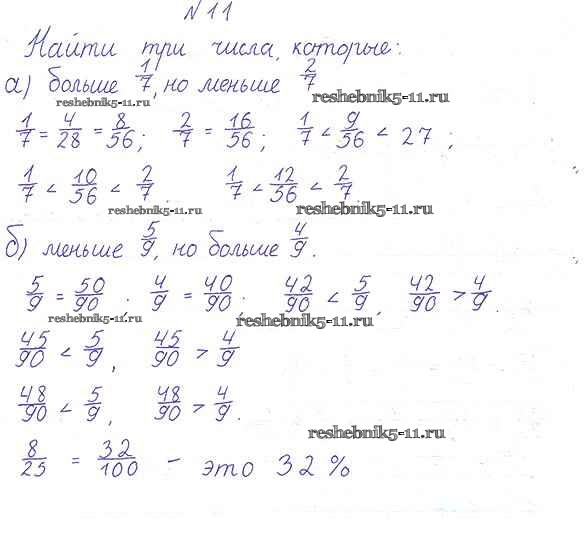 N 11
Найти три числа, которые:
а) больше 1/7, но меньше 2/7
reshebnik5-11.ru reshebnik5-11.ru
1/7 = 4/28 = 8/56; 2/7 = 16/56; 1/7 < 9/56 < 27;
1/7 < 10/56 < 2/7. 1/7 < 12/56 < 2/7
reshebnik5-11.ru reshebnik5-11.ru
б) меньше 5/9, но больше 4/9.
5/9 = 50/90. 4/9 = 40/90. 42/90 < 5/9, 42/90 > 4/9.
reshebnik5-11.ru reshebnik5-11.ru
45/90 < 5/9, 45/90 > 4/9
48/90 < 5/9, 48/90 > 4/9.
reshebnik5-11.ru
8/25 = 32/100 - это 32 %